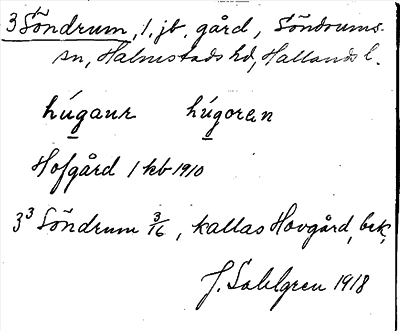 3 Söndrum, 1 jb. gård, Söndrums
sn, Halmstads hd, Hallands l.
húgaur húgoren
Hofgård 1 kb 1910
3³ Söndrum 3/16, kallas Hovgård, bek,
J. Sahlgren 1918